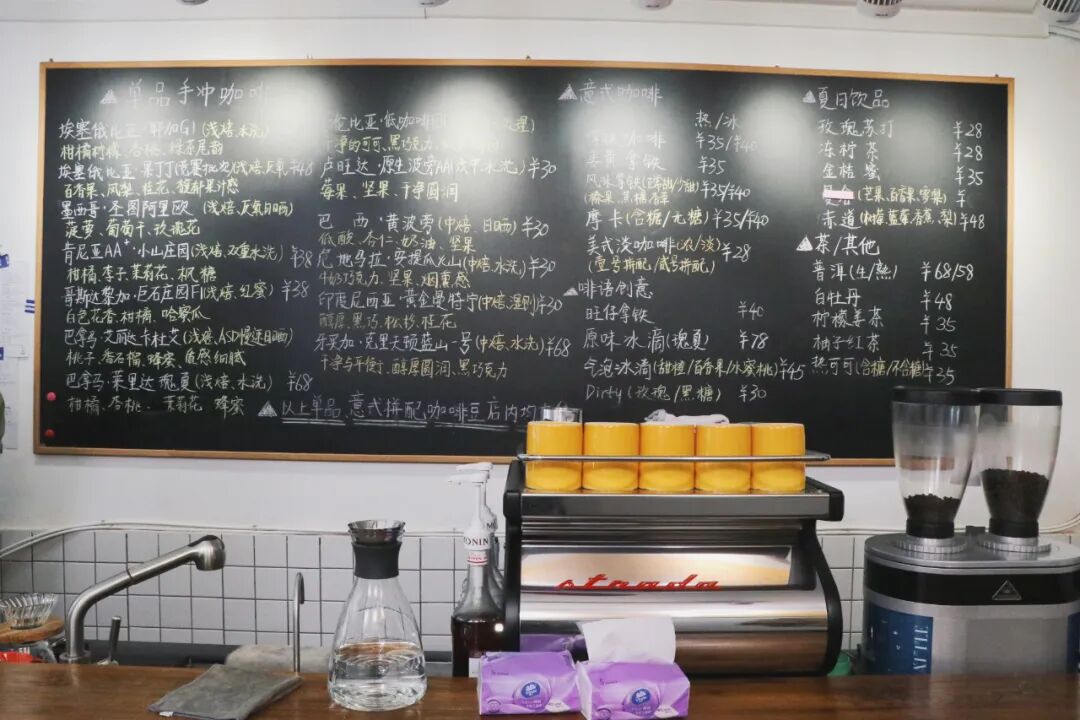 单品手冲咖啡
埃塞俄比亚·耶加G1 (浅焙、水洗)
柑橘柠檬、杏桃、绿茶尾韵
埃塞俄比亚·果丁丁 ¥48
百香果、凤梨、桂花、
墨西哥·圣图阿里欧 (浅焙、厌氧日晒)
菠萝、葡萄干、玫瑰花
肯尼亚AA+·小山庄园(浅焙、双重水洗) ¥38
柑橘、李子、茉莉花、枫糖
哥斯达黎加·巨石庄园F1(浅焙、红蜜) ¥38
白色花香、柑橘、哈蜜瓜
巴拿马·艾丽达卡杜艾(浅焙、ASD慢速日晒)
桃子、番石榴、蜂蜜、质感细腻
巴拿马·莱里达 瑰夏(浅焙、水洗) ¥68
柑橘、杏桃、茉莉花 蜂蜜
干净的可可、黑巧克力
卢旺达·原生波旁AA(水洗) ¥30
莓果、坚果、干净圆润
巴西·黄波旁(中焙、日晒) ¥30
低酸、杏仁、奶油、坚果
地马拉·安提瓜火山(中焙、水洗) ¥30
牛奶巧克力、坚果、烟熏感
印度尼西亚·黄金曼特宁(中焙、湿刨) ¥30
醇厚、黑巧、松杉、桂花
牙买加·克里夫顿蓝山一号(中焙、水洗) ¥68
干净与平衡、醇厚圆润、黑巧克力
以上单品、意式拼配咖啡豆店内均
意式咖啡
热/冰
咖啡 ¥35/¥40
拿铁 ¥35
风味拿铁 ¥35/¥40
(榛果、焦糖、香草)
摩卡(含糖/无糖) ¥35/¥40
美式淡咖啡(浓/淡) ¥28
(壹号拼配/贰号拼配)
啡语创意
旺仔拿铁 ¥40
原味冰滴(瑰夏) ¥78
气泡冰滴(甜橙/百香果/水蜜桃) ¥45
Dirty(玫瑰/黑糖) ¥30
夏日饮品
玫瑰苏打 ¥28
冻柠茶 ¥28
金桔蜜 ¥35
(芒果、百香果、雪梨) ¥
赤道(柑橘、蓝莓、香蕉、梨) ¥48
茶/其他
普洱(生/熟) ¥68/58
白牡丹 ¥48
柠檬姜茶 ¥35
柚子红茶 ¥35
热可可(含糖/不含糖) ¥35
MONIN
strada